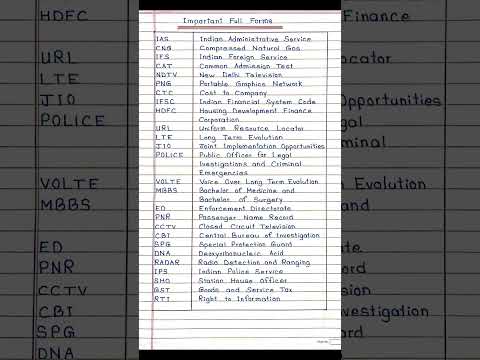 Important Full Forms
IAS Indian Administrative Service
CNG Compressed Natural Gas
IFS Indian Foreign Service
CAT Common Admission Test
NDTV New Delhi Television
PNG Portable Graphics Network
CTC Cost to Company
IFSC Indian Financial System Code
HDFC Housing Development Finance
Corporation
URL Uniform Resource Locator
LTE Long Term Evolution
JIO Joint Implementation Opportunities
POLICE Public Officer for Legal
Ivestigations and Criminal
Emergencies
VOLTE Voice Over Long Term Evolution
MBBS Bachelor of Medicine and
Bachelor of Surgery
ED Enforcement Directorate
PNR Passenger Name Record
CCTV Closed Circuit Television
CBI Central Bureau of Investigation
SPG Special Protection Guard
DNA Deoxyribonucleic Acid
RADAR Radio Detection and Ranging
IPS Indian Police Service
SHO Station House Officer
GST Goods and Service Tax
RTI Right to Information
HDFC
URL
LTE
JIO
POLICE
VOLTE
MBBS
ED
PNR
CCTV
CBI
SPG
DNA
Finance
cator
Opportunities
gal
minal
Evolution
and
ord
vestigation